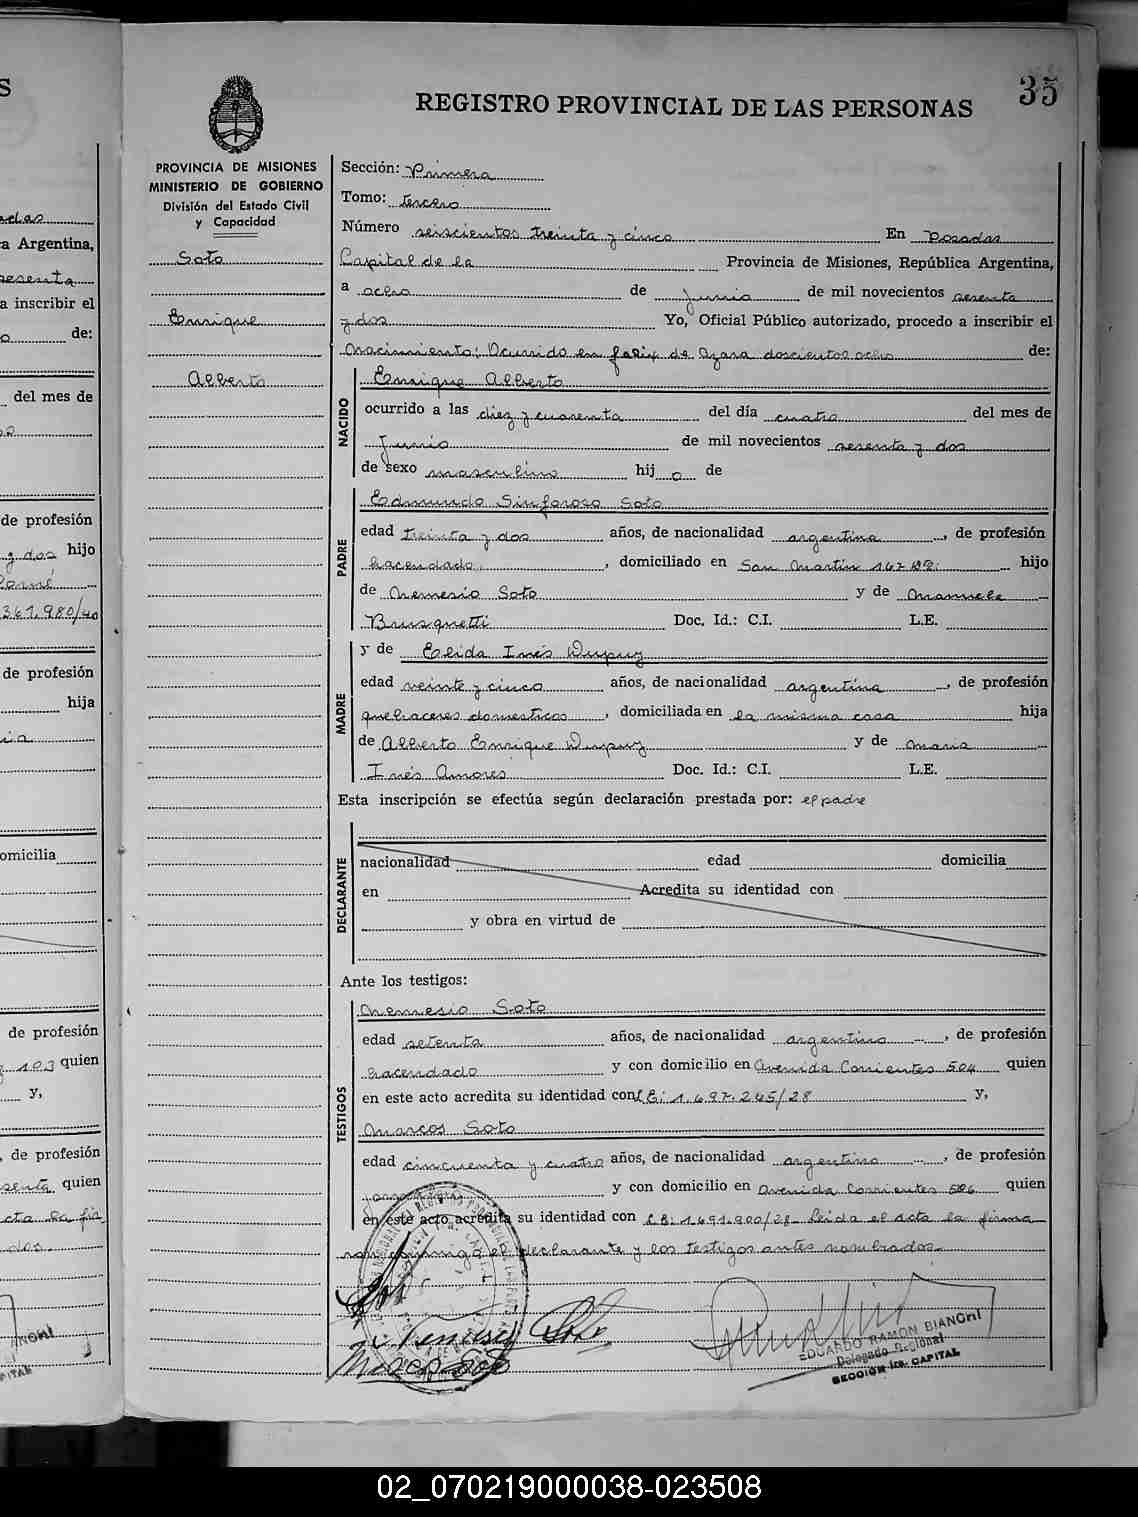 35
REGISTRO PROVINCIAL DE LAS PERSONAS
PROVINCIA DE MISIONES
MINISTERIO DE GOBIERNO
División del Estado Civil
y Capacidad
Soto
Enrique
Alberto
Sección: Primera
Tomo: tercero
Número seiscientos treinta y cinco En Posadas
Capital de la Provincia de Misiones, República Argentina,
a ocho de Junio de mil novecientos sesenta
y dos Yo, Oficial Público autorizado, procedo a inscribir el
Nacimiento: Ocurrido en Felix de Azara doscientos ocho de:
NACIDO
Enrique Alberto
ocurrido a las diez y cuarenta del día cuatro del mes de
Junio de mil novecientos sesenta y dos
de sexo masculino hij o de
PADRE
Edmundo Sinforoso Soto
edad treinta y dos años, de nacionalidad argentina, de profesión
hacendado, domiciliado en San Martin 167 hijo
de Nemesio Soto y de Manuela
Brusquetti Doc. Id.: C.I. L.E.
MADRE
y de Elida Inés Dupuy
edad veinte y cinco años, de nacionalidad argentina, de profesión
quehaceres domesticos, domiciliada en la misma casa hija
de Alberto Enrique Dupuy y de Maria
Inés Amores Doc. Id.: C.I. L.E.
Esta inscripción se efectúa según declaración prestada por: el padre
DECLARANTE
nacionalidad edad domicilia
en Acredita su identidad con
y obra en virtud de
Ante los testigos:
TESTIGOS
Nemesio Soto
edad setenta años, de nacionalidad argentino, de profesión
hacendado y con domicilio en Avenida Corrientes 504 quien
en este acto acredita su identidad con LE: 1.697.245/28 y,
Marcos Soto
edad cincuenta y cuatro años, de nacionalidad argentino, de profesión
y con domicilio en Avenida Corrientes 506 quien
en este acto acredita su identidad con L.E: 1.691.900/28 Leida el acta la firma
conmigo el declarante y los testigos antes nombrados.
Nemesio Soto
Marcos Soto
EDUARDO RAMON BIANCHI
Delegado Regional
SECCION 1ra. CAPITAL
a Argentina,
a inscribir el
de:
del mes de
de profesión
y dos hijo
361.980/40
de profesión
hija
omicilia
de profesión
103 quien
y,
de profesión
senta quien
02_070219000038-023508